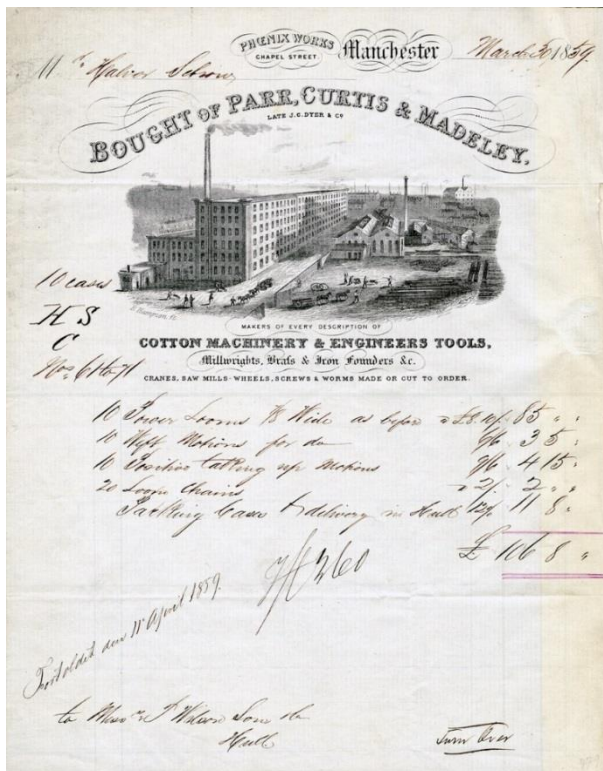 PHŒNIX WORKS
CHAPEL STREET.
Manchester
March 30 1859.
Halvor Schou
BOUGHT OF PARR, CURTIS & MADELEY.
LATE J.C. DYER & Co
10 cases
H S
C
Nos 61 to 71
MAKERS OF EVERY DESCRIPTION OF
COTTON MACHINERY & ENGINEERS TOOLS,
Millwrights, Brass & Iron Founders &c.
CRANES, SAW MILLS-WHEELS, SCREWS & WORMS MADE OR CUT TO ORDER.
10 Power Looms 7/8 Wide as before £8.10/- 85 " "
10 Weft Motions for do 7/6 3 15 "
10 Positive talking up Motions 9/6 4 15 "
20 Loom Chains 2/- 2 " "
Packing Cases & delivery in Hull 12½ 11 8 "
£ 106 8 "
260
Fortoldet den 11 April 1859.
to Messrs T Wilson Sons &
Hull
Turn Over